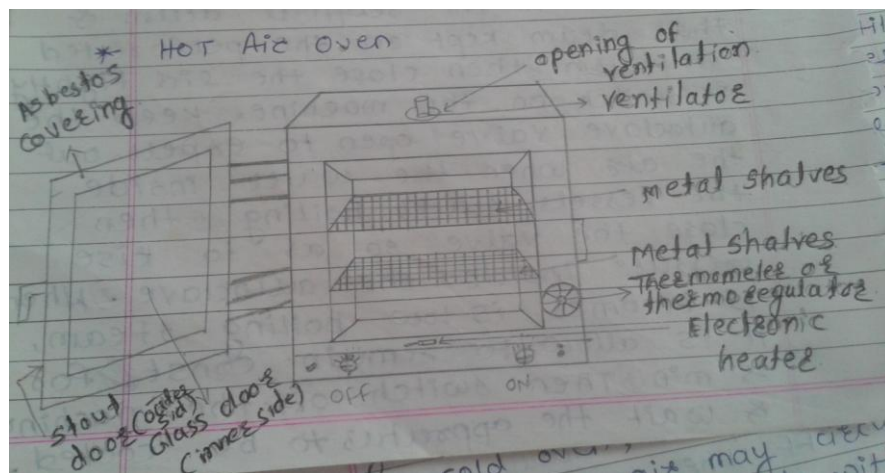 * HOT Air oven
Asbestos
covering
opening of
ventilation
ventilator
metal shalves
Metal shalves
Thermometer of
thermoregulator
Electronic
heater
OFF
ON
stout
door (outer
sid)
Glass door
(inner side)
may